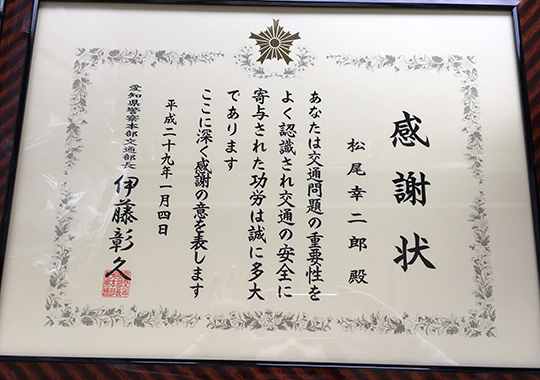 感謝状
松尾幸二郎 殿
あなたは交通問題の重要性を
よく認識され交通の安全に
寄与された功労は誠に多大
であります
ここに深く感謝の意を表します
平成二十九年一月四日
愛知県警察本部交通部長 伊藤彰久